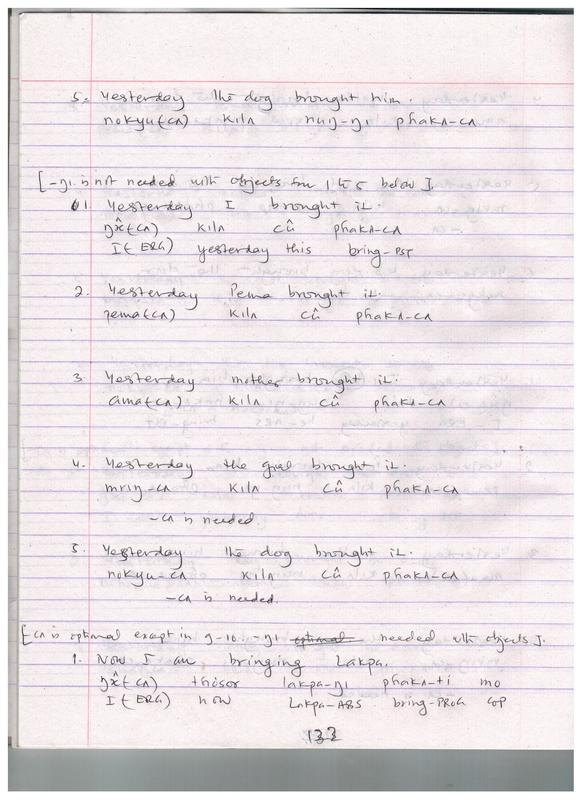 5. Yesterday the dog brought him.
nokyu(cʌ) kilʌ nuŋ-ŋi phakʌ-cʌ
[-ŋi is not needed with objects for 1 to 5 below].
1 Yesterday I brought it.
kilʌ cû phakʌ-cʌ
I(ERG) yesterday this bring-PST
2. Yesterday Pema brought it.
pema(cʌ) kilʌ cû phakʌ-cʌ
3. Yesterday mother brought it.
ama(cʌ) kilʌ cû phakʌ-cʌ
4. Yesterday the girl brought it.
mriŋ-cʌ kilʌ cû phakʌ-cʌ
-cʌ is needed
5. Yesterday the dog brought it.
nokyu-cʌ kilʌ cû phakʌ-cʌ
-cʌ is needed.
[cʌ is optional except in 9-10. -ŋi needed with objects].
1. Now I am bringing Lakpa.
lakpa-ŋi phakʌ-ti mo
I(ERG) now Lakpa-ABS bring-PROG COP